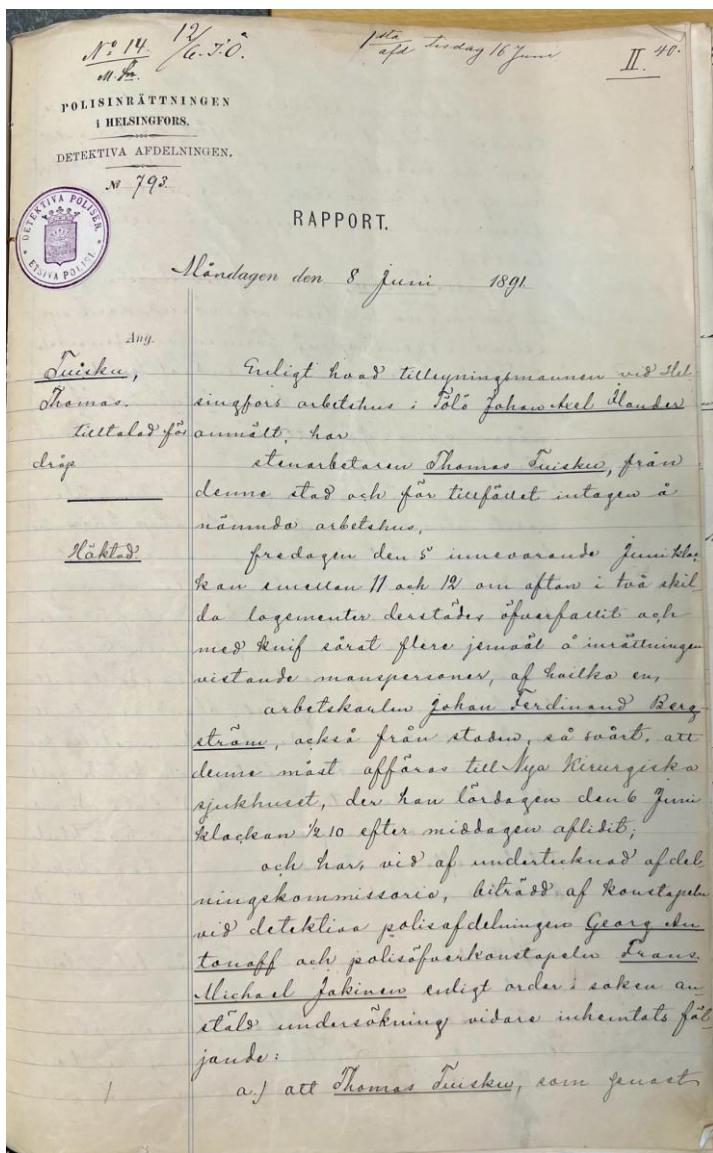 No 14. 12/6. T.Ö. 1sta afd tisdag 16 Juni II. 40.
POLISINRÄTTNINGEN
i HELSINGFORS.
DETEKTIVA AFDELNINGEN.
No 793.
DETEKTIVA POLISEN.
ETSIVÄ POLISI.
RAPPORT.
Måndagen den 8 Juni 1891
Ang.
Tuisku,
Thomas.
tilltalad för
dråp
Häktad.
Enligt hvad tillsyningsmannen vid Hel
singfors arbetshus i Tölö Johan Axel Ölander
anmält, har
stenarbetaren Thomas Tuisku, från
denne stad och för tillfället intagen å
nämnda arbetshus,
fredagen den 5 innevarande Juni kloc
kan emellan 11 och 12 om afton i två skil
da logementer derstädes öfverfallit och
med knif sårat flere jemväl å inrättningen
vistande manspersoner, af hvilka en,
arbetskarlen Johan Ferdinand Berg
ström, också från staden, så svårt, att
denne måst afföras till Nya Kirurgiska
sjukhuset, der han lördagen den 6 Juni
klockan 1/2 10 efter middagen aflidit;
och har, vid af undertecknad afdel
ningskommissarie, biträdd af konstapeln
vid detektiva polisafdelningen Georg An
tonoff och polisöfverkonstapeln Frans
Michael Jokinen enligt order i saken an
stäld undersökning vidare inhemtats föl
jande:
a.) att Thomas Tuisku, som genast